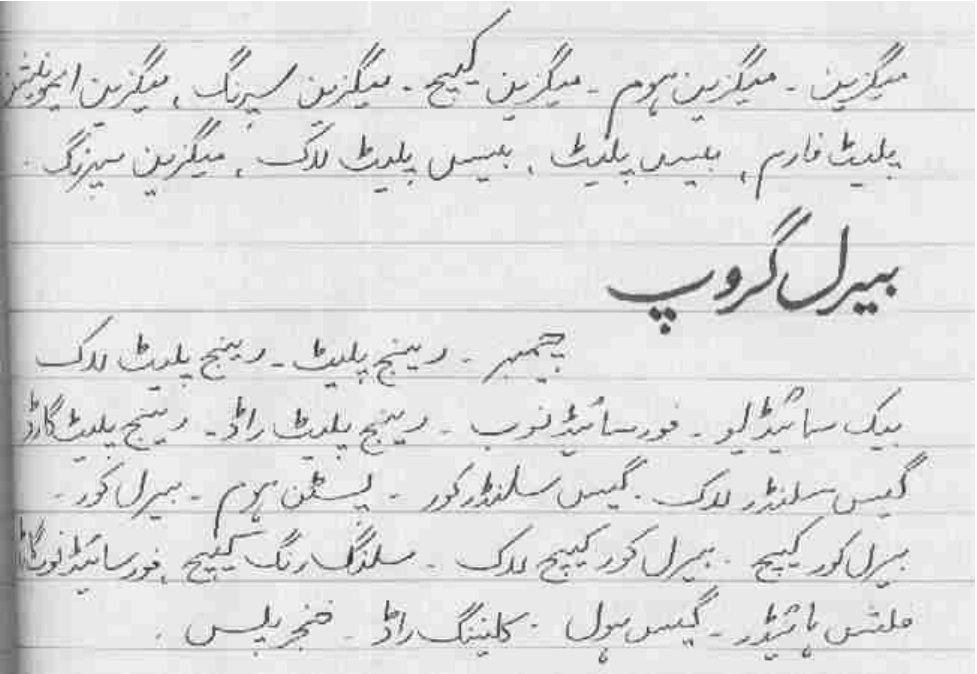 میگزین ۔ میگزین ہوم ۔ میگزین کیچ ۔ میگزین سپرنگ ، میگزین ایمونیشن
پلیٹ فارم ، بیس پلیٹ ، بیس پلیٹ لاک ، میگزین سپرنگ ۔
بیرل گروپ
چیمبر ۔ رینج پلیٹ ۔ رینج پلیٹ لاک
بیک سائیڈ لیو ۔ فورسائیڈ نوب ۔ رینج پلیٹ راڈ ۔ رینج پلیٹ گارڈ
گیس سلنڈر لاک ۔ گیس سلنڈر کور ۔ پسٹن ہوم ۔ بیرل کور ۔
بیرل کور کیچ ۔ بیرل کور کیچ لاک ۔ سلنگ رنگ کیچ ، فورسائیڈ نوب گارڈ
فلش ہائیڈر ۔ گیس ہول ۔ کلیننگ راڈ ۔ خنجر پلس ۔